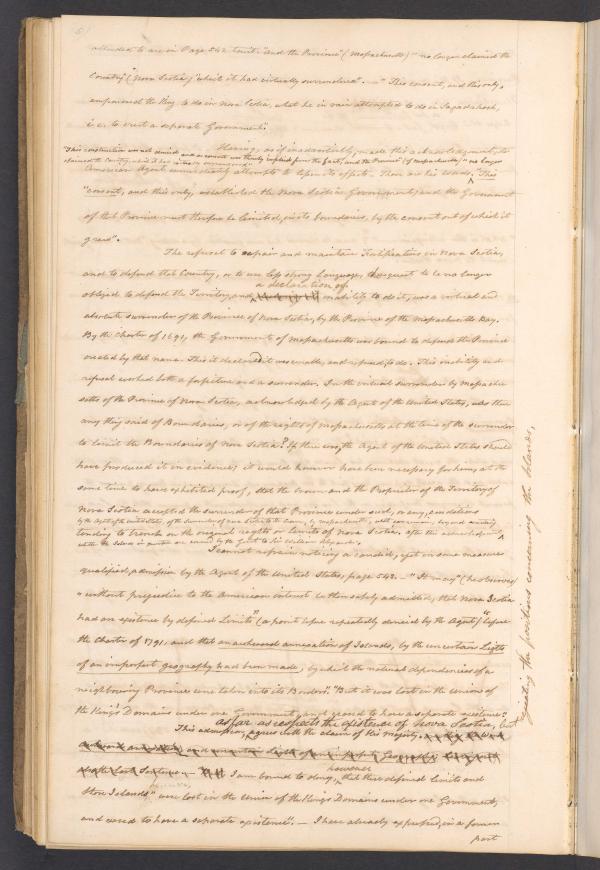 attended to are in Page 542 towit: "and the Province" (Massachusetts) "no longer claimed the
Country" (Nova Scotia) "which it had virtually surrendered". — "This consent, and this only,
empowered the King to do in Nova Scotia, what he in vain attempted to do in Sagadahock,
i.e. to erect a separate Government".
Having, as if inadvertently, made this acknowledgment, the
"This construction was not denied and a consent was thereby implied from the fact, and the Province" (of Massachusetts) "no longer
claimed the Country, which it had virtually surrendered"
American Agent immediately attempts to lessen its effect. These are his words. "This
"consent, and this only, established the Nova Scotia Government, and the Government
of that Province must therefore be limited, in its boundaries, by the consent out of which it
grew".
The refusal to repair and maintain Fortifications in Nova Scotia,
and to defend that Country, or to use less strong Language, the request to be no longer
a declaration of
obliged to defend the Territory, and inability to do it, was a virtual and
absolute surrender of the Province of Nova Scotia, by the Province of the Massachusetts Bay.
By the Charter of 1691, the Government of Massachusetts was bound to defend the Province
created by that name. This it declared it was unable, and refused, to do. This inability and
refusal worked both a forfeiture and a surrender. In the virtual surrender by Massachu-
setts of the Province of Nova Scotia, acknowledged by the Agent of the United States, was there
any thing said of Boundaries, or of the rights of Massachusetts at the time of the surrender
to limit the Boundaries of Nova Scotia? If there was, the Agent of the United States should
have produced it in evidence; it would however have been necessary for him, at the
same time to have exhibited proof, that the Crown and the Proprietor of the Territory of
Nova Scotia accepted the surrender of that Province under such, or any, conditions
by the Agent of the United States, of the surrender of
tending to trench on the original rights or limits of Nova Scotia, after this acknowledgment
I cannot refrain noticing a candid, yet in some measure
qualified, admission by the Agent of the United States, page 542. — "It may" (he observes)
"without prejudice to the American interest be then safely admitted, that Nova Scotia
had an existence by defined Limits" (a point before repeatedly denied by the Agent) "before
the Charter of 1791, and that an awkward annexation of Islands, by the uncertain Lights
of an imperfect geography had been made, by which the natural dependencies of a
neighbouring Province were taken into its Borders". "But it was lost in the Union of
the King's Domains under one Government, and ceased to have a separate existence".
as far as respects the existence of Nova Scotia, but
This admission, agrees with the claim of his Majesty,
however
I am bound to deny, that these defined limits and
these Islands" were lost in the Union of the King's Domains under one Government,
and ceased to have a separate existence". — I have already expressed, in a former
part
respecting the positions concerning the Islands,